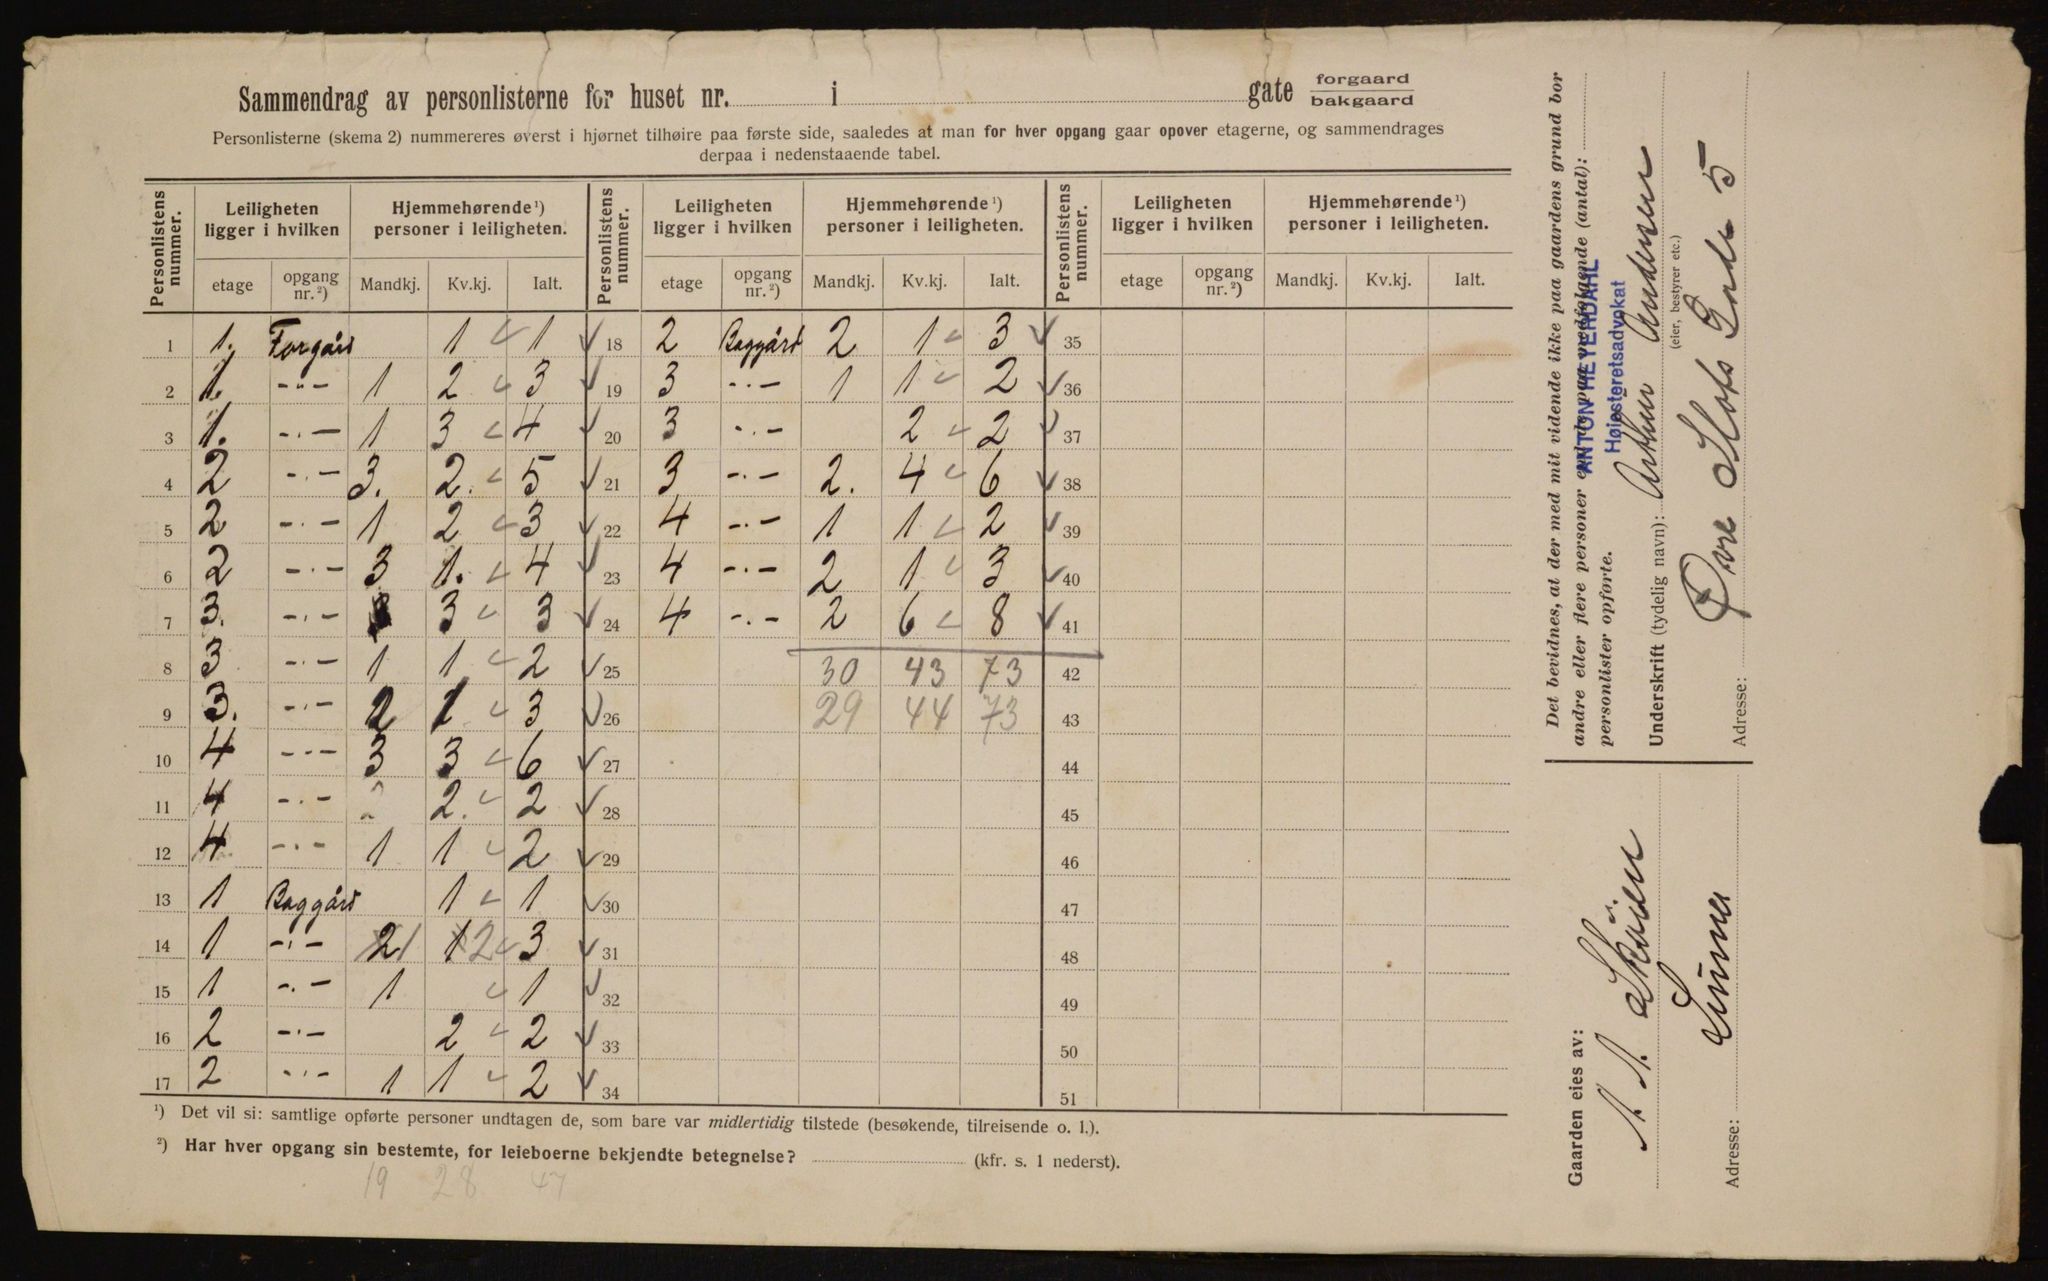 Sammendrag av personlisterne for huset nr. i gate forgaard bakgaard
Personlisterne (skema 2) nummereres øverst i hjørnet tilhøire paa første side, saaledes at man for hver opgang gaar opover etagerne, og sammendrages
derpaa i nedenstaaende tabel.
Personlistens nummer. Leiligheten ligger i hvilken Hjemmehørende ¹) personer i leiligheten. Personlistens nummer. Leiligheten ligger i hvilken Hjemmehørende ¹) personer i leiligheten. Personlistens nummer. Leiligheten ligger i hvilken Hjemmehørende ¹) personer i leiligheten.
etage opgang nr. ²) Mandkj. Kv.kj. Ialt. etage opgang nr. ²) Mandkj. Kv.kj. Ialt. etage opgang nr. ²) Mandkj. Kv.kj. Ialt.
1 1. Forgård 1 1 18 2 Baggård 2 1 3 35
2 1. -"- 1 2 3 19 3 -"- 1 1 2 36
3 1. -"- 1 3 4 20 3 -"- 2 2 37
4 2 -"- 3. 2. 5 21 3 -"- 2. 4 6 38
5 2 -"- 1 2 3 22 4 -"- 1 1 2 39
6 2 -"- 3 1. 4 23 4 -"- 2 1 3 40
7 3. -"- 3 3 24 4 -"- 2 6 8 41
8 3 -"- 1 1 2 25 30 43 73 42
9 3. -"- 2 1 3 26 29 44 73 43
10 4 -"- 3 3 6 27 44
11 4 -"- " 2. 2 28 45
12 4 -"- 1 1 2 29 46
13 1 Baggård 1 1 30 47
14 1 -"- 2 1 1 2 3 31 48
15 1 -"- 1 1 32 49
16 2 -"- 2 2 33 50
17 2 -"- 1 1 2 34 51
¹) Det vil si: samtlige opførte personer undtagen de, som bare var midlertidig tilstede (besøkende, tilreisende o. l.).
²) Har hver opgang sin bestemte, for leieboerne bekjendte betegnelse? (kfr. s. 1 nederst).
19 28 47
Det bevidnes, at der med mit vidende ikke paa gaardens grund bor
andre eller flere personer end de paa medfølgende (antal):
personlister opførte.
ANTON HEYERDAHL
Høiesteretsadvokat
Underskrift (tydelig navn): Arthur Andersen
(eier, bestyrer etc.)
Adresse: Øvre Slots Gade 5
Gaarden eies av:
Adresse: